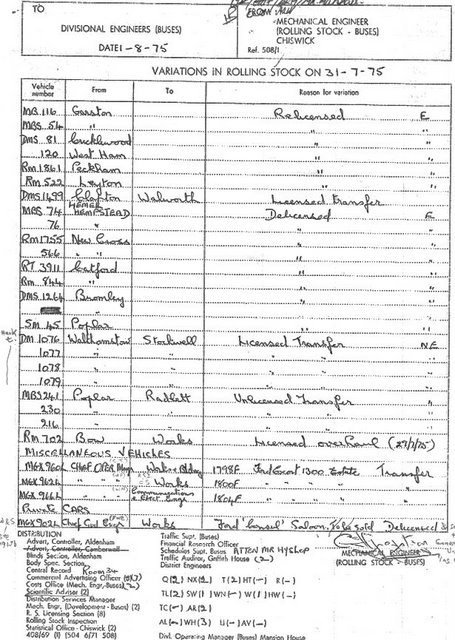 TO
DIVISIONAL ENGINEERS (BUSES)
DATE 1-8-75
FROM
MECHANICAL ENGINEER
(ROLLING STOCK - BUSES)
CHISWICK
Ref. 508/1
VARIATIONS IN ROLLING STOCK ON 31-7-75
Vehicle number From To Reason for variation
MB 116 Garston Relicensed E
MBS 54 " " "
DMS 81 Cricklewood " "
120 West Ham " "
RM 1861 Peckham " "
RM 522 Leyton " "
DMS 1499 Clapton Walworth Licensed transfer
MBS 74 HEMEL HEMPSTEAD Delicensed E
76 " " "
RM 1755 New Cross " "
566 " " " "
RT 3911 Catford " "
RM 844 " " "
DMS 1264 Bromley " "
SM 45 Poplar " "
DM 1076 Walthamstow Stockwell Licensed Transfer NE
1077 " " " "
1078 " " " "
1079 " " " "
MBS 241 Poplar Radlett Unlicensed Transfer "
230 " " " "
216 " " " "
RM 702 Bow Works Licensed overhaul (29/7/75)
MISCELLANEOUS VEHICLES
MGX 960L CHIEF OPER Mngr Works & Bldg 1798F Ford Escort 1300 Estate Transfer
MGX 962L " " Works 1800F " " "
MGX 966L " " Communications & Elect. Engr 1804F " " "
Private CARS
MGX 902L Chief Civil Engr Works Ford 'Consul' Saloon. To be sold Delicensed
DISTRIBUTION
Advert, Controller, Aldenham
Advert, Controller, Camberwell
Blinds Section, Aldenham
Body Spec. Section
Central Record Room 34
Commercial Advertising Officer
Costs Office (Mech. Engr. Buses)
Scientific Adviser (2)
Distribution Services Manager
Mech. Engr. (Development - Buses) (2)
R. S. Licensing Section (8)
Rolling Stock Inspection
Statistical Office - Chiswick (2)
408/69 (1) (504 6/71 508)
Traffic Supt. (Buses)
Financial Research Officer
Schedules Supt. Buses ATTEN MR HYSLOP
Traffic Auditor, Griffith House (2)
District Engineers
Q(2) NX(2) T(2) HT(-) R(-)
TL(2) SW(1) WN(-) W(1) HW(-)
TC(-) AR(2)
AL(-) WH(3) U(-) AV(-)
Divl. Operating Manager (Buses) Mansion House
MECHANICAL ENGINEER
(ROLLING STOCK - BUSES)